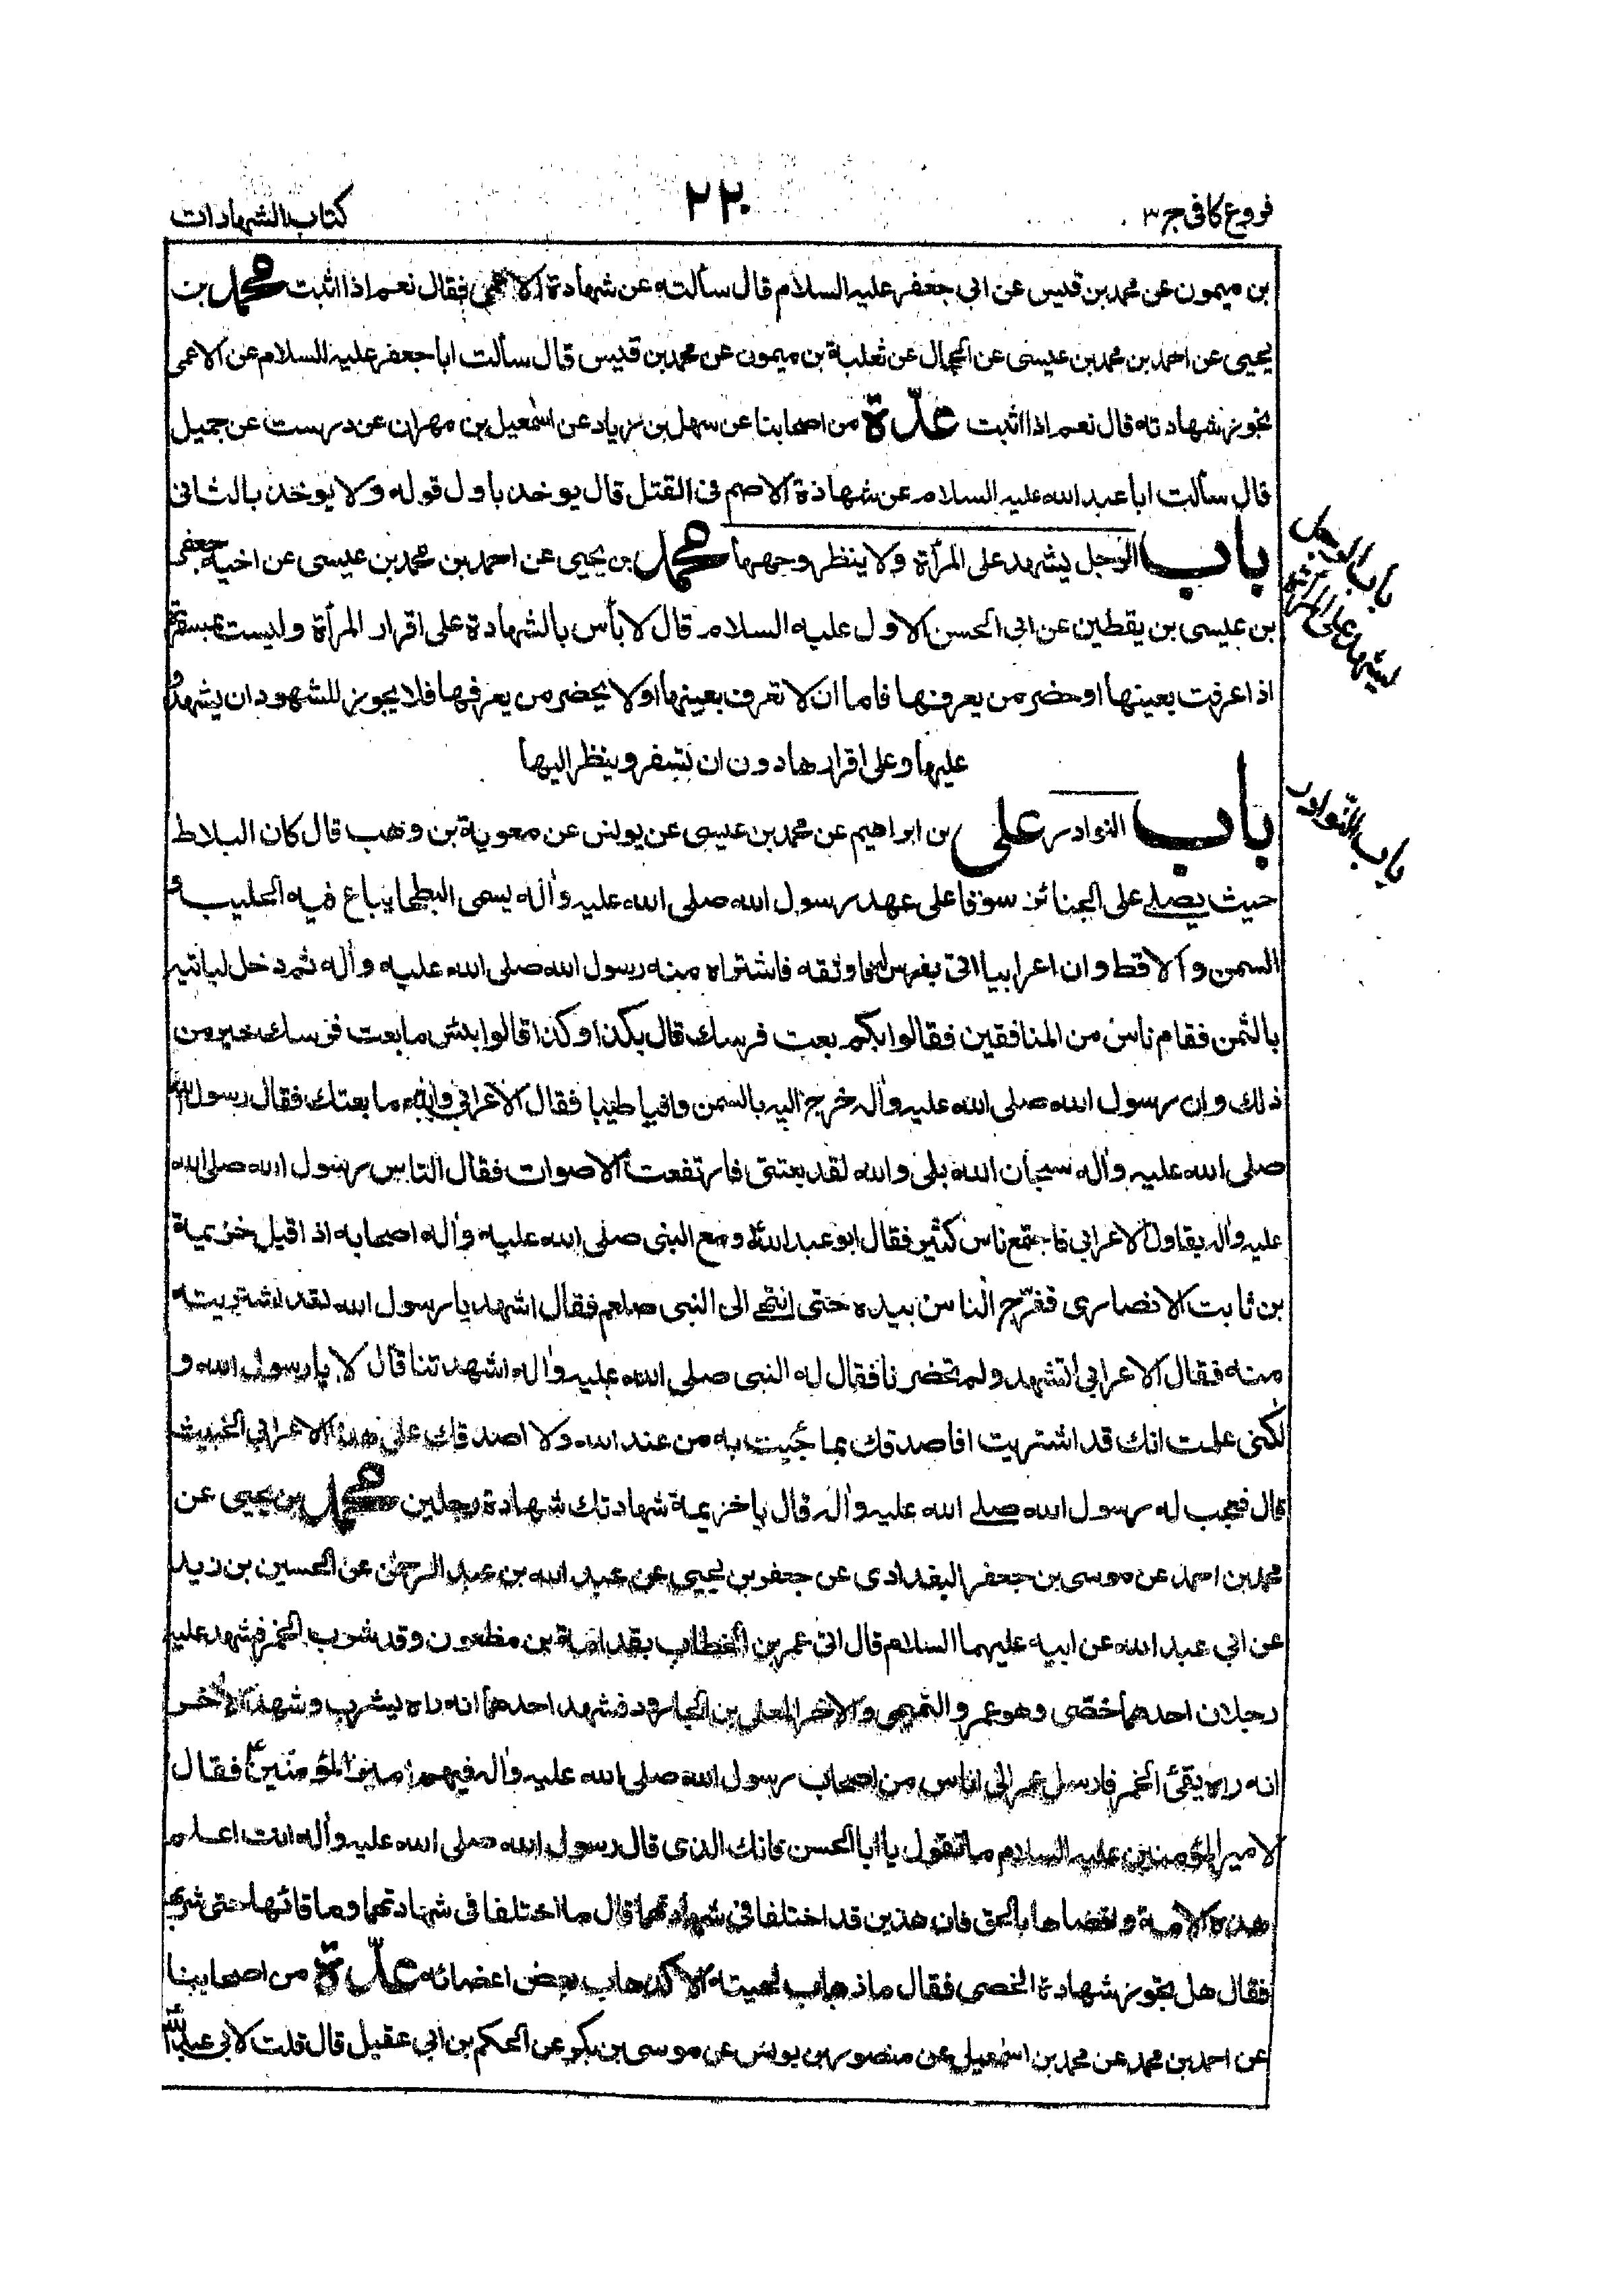 فروع كافى جر ٣
٢٢٠
كتاب الشهادات
بن ميمون عن محمد بن قيس عن ابى جعفر عليه السلام قال سألته عن شهادة الاعمى فقال نعم اذا اثبت محمد بن
يحيى عن احمد بن محمد بن عيسى عن الحجال عن ثعلبة بن ميمون عن محمد بن قيس قال سألت ابا جعفر عليه السلام عن الاعمى
تجوز شهادته قال نعم اذا اثبت عدّة من اصحابنا عن سهل بن زياد عن اسمعيل بن مهران عن درست عن جميل
قال سألت ابا عبد الله عليه السلام عن شهادة الاصم فى القتل قال يوخذ باول قوله ولا يوخذ بالثانى
باب الرجل يشهد على المرأة ولا ينظر وجهها محمد بن يحيى عن احمد بن محمد بن عيسى عن اخيه جعفر
بن عيسى بن يقطين عن ابى الحسن الاول عليه السلام قال لا بأس بالشهادة على اقرار المرأة وليست بمسفرة
اذا عرفت بعينها او حضر من يعرفها فاما ان لا تعرف بعينها او لا يحضر من يعرفها فلا يجوز للشهود ان يشهدوا
عليها وعلى اقرارها دون ان تسفر وينظر اليها
باب النوادر على بن ابراهيم عن محمد بن عيسى عن يونس عن معوية بن وهب قال كان البلاط
حيث يصلے على الجنائز سوقا على عهد رسول الله صلى الله عليه واله يسمى البطحا يباع فيه الحليب و
السمن والاقط وان اعرابيا اتى بفرس لهما وثقه فاشتراه منه رسول الله صلى الله عليه واله ثم دخل لياتيه
بالثمن فقام ناس من المنافقين فقالوا بكم بعت فرسك قال بكذا وكذا قالوا بئس ما بعت فرسك خير من
ذلك وان رسول الله صلى الله عليه واله خرج اليه بالسمن وافيا طيبا فقال الاعرابى والله ما بعتك فقال رسول الله
صلى الله عليه واله سبحان الله بلى والله لقد بعتنى فارتفعت الاصوات فقال الناس رسول الله صلى الله
عليه واله يقاول الاعرابى فاجتمع ناس كثير فقال ابو عبد الله ع ومع النبى صلى الله عليه واله اصحابه اذ اقبل خزيمة
بن ثابت الانصارى ففرّج الناس بيده حتى انتهے الى النبى صلعم فقال اشهد يا رسول الله لقد اشتريته
منه فقال الاعرابى أتشهد ولم تحضرنا فقال له النبى صلى الله عليه واله اشهدتنا قال لا يا رسول الله و
لكنى علمت انك قد اشتريت افاصدقك بما جئت به من عند الله ولا اصدقك على هذا الاعرابى الخبيث
قال فعجب له رسول الله صلے الله عليه واله قال يا خزيمة شهادتك شهادة رجلين محمد بن يحيى عن
محمد بن احمد عن موسى بن جعفر البغدادى عن جعفر بن يحيى عن عبد الله بن عبد الرحمن عن الحسين بن زيد
عن ابى عبد الله عن ابيه عليهما السلام قال اتى عمر بن الخطاب بقدامة بن مظعون وقد شرب الخمر فشهد عليه
رجلان احدهما خصّى وهو عمرو التميمى والاخر المعلى بن الجارود فشهد احدهما انه راه يشرب وشهد الاخر
انه راه يقئ الخمر فارسل عمر الى اناس من اصحاب رسول الله صلى الله عليه واله فيهم امير المؤمنين ع فقال
لامير المؤمنين عليه السلام ما تقول يا ابا الحسن فانك الذى قال رسول الله صلى الله عليه واله انت اعلم
هذه الامة واقضاها بالحق فان هذين قد اختلفا فى شهادتهما قال ما اختلفا فى شهادتهما وما قائها حتى شربها
فقال هل تجوز شهادة الخصى فقال ما ذهاب لحيته الا كذهاب بعض اعضائه عدّة من اصحابنا
عن احمد بن محمد عن محمد بن اسمعيل عن منصور بن يونس عن موسى بن بكر عن الحكم بن ابى عقيل قال قلت لابى عبد الله
باب الرجل
يشهد على المرأة
باب النوادر